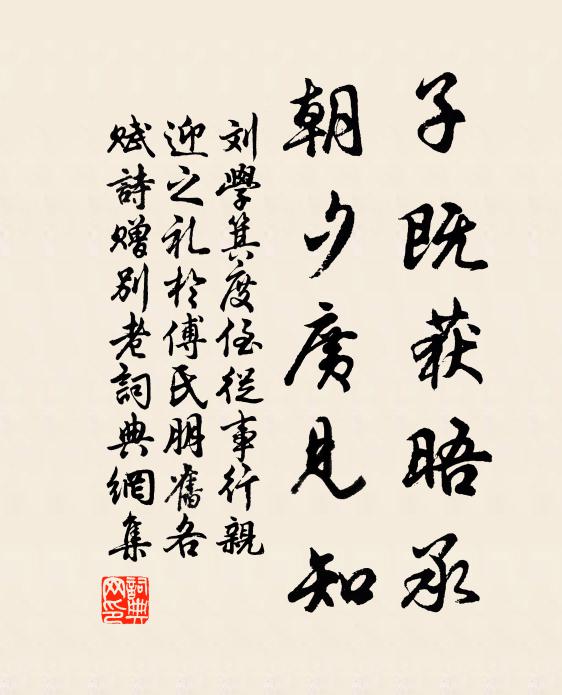 子既获晤承
朝夕广见知
刘學箕度侄從事行親
迎之礼於傅氏朋舊各
赋詩赠别老詞典網集
詞典
网印